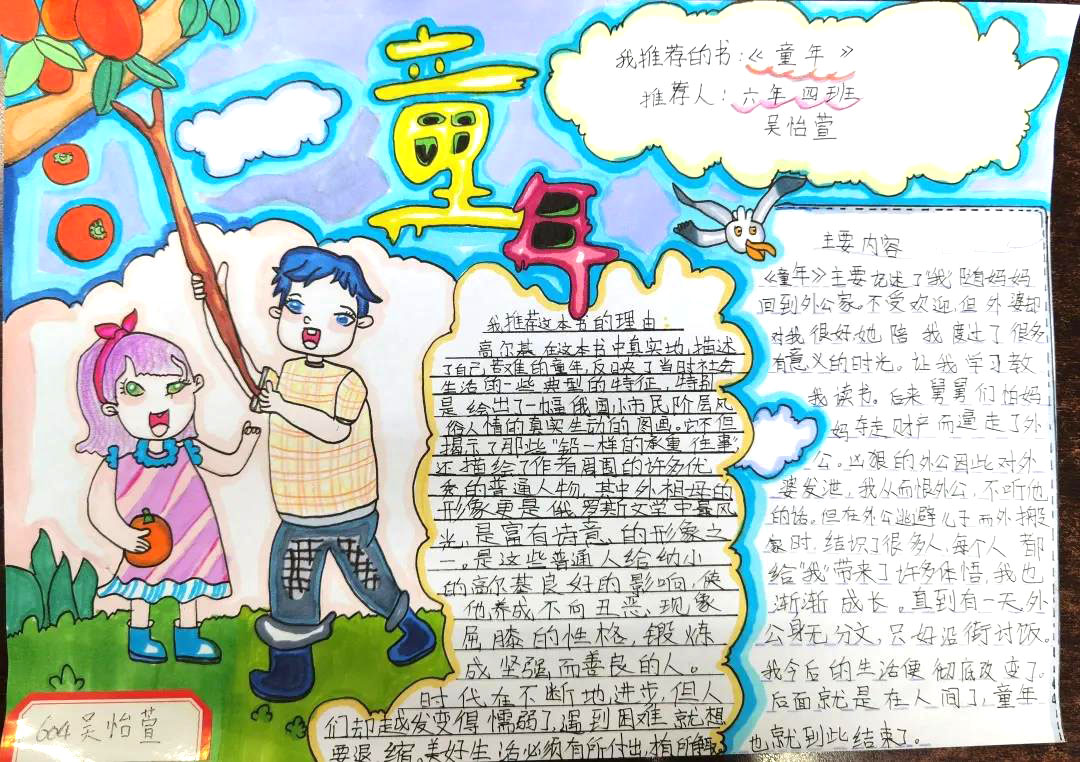 童年
我推荐的书:《童年》
推荐人:六年四班
吴怡萱
我推荐这本书的理由
高尔基在这本书中真实地描述
了自己苦难的童年,反映了当时社会
生活的一些典型的特征,特别
是绘出了一幅俄国小市民阶层风
俗人情的真实生动的图画。它不但
揭示了那些"铅一样的沉重往事"
还描绘了作者周围的许多优
秀的普通人物,其中外祖母的
形象更是俄罗斯文学中最风
光,是富有诗意的形象之
一。是这些普通人给幼小
的高尔基良好的影响,使
他养成不向丑恶现象
屈膝的性格,锻炼
成坚强而善良的人。
时代在不断地进步,但人
们却越发变得懦弱了,遇到困难就想
要退缩。美好生活必须有所付出,
主要内容
《童年》主要记述了"我"随妈妈
回到外公家。不受欢迎,但外婆却
对我很好,她陪我度过了很多
有意义的时光。让我学习教
我读书。后来舅舅们怕妈
妈夺走财产而逼走了外
公。凶狠的外公因此对外
婆发泄,我从而恨外公,不听他
的话。但在外公逃避儿子而外搬
家时,结识了很多人,每个人都
给"我"带来了许多体悟,我也
渐渐成长。直到有一天,外
公身无分文,只好沿街讨饭。
我今后的生活便彻底改变了。
后面就是在人间了,童年
也就到此结束了。
604吴怡萱